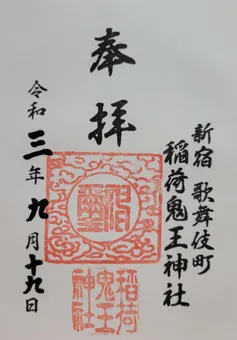 奉拝
新宿 歌舞伎町
稲荷鬼王神社
令和三年九月十九日
稲荷
鬼王
神社